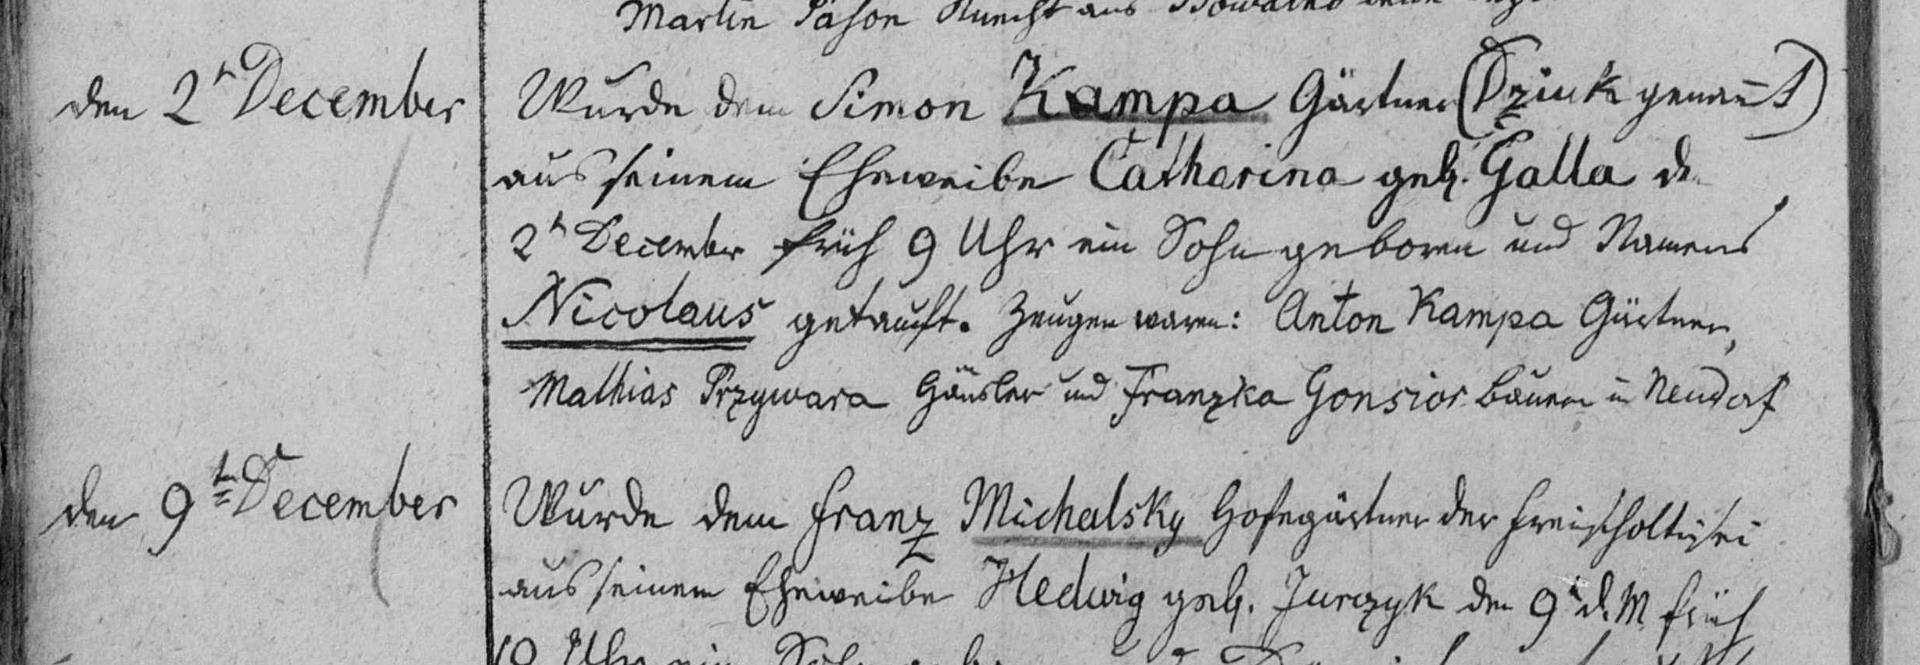 Martin Pason Knecht aus
den 2n December Wurde dem Simon Kampa Gärtner (Dziuk genant)
aus seinem Eheweibe Catharina geb. Galla de
2n December früh 9 Uhr ein Sohn geboren und Namens
Nicolaus getauft. Zeugen waren: Anton Kampa Gärtner,
Mathias Przywara Häusler und Franzka Gonsior Bäuerin in Neudorf
den 9ten December Wurde dem Franz Michalsky Hofegärtner der Freischoltisei
aus seinem Eheweibe Hedwig geb. Jurczyk den 9n d. M. früh
10 Uhr ein Sohn